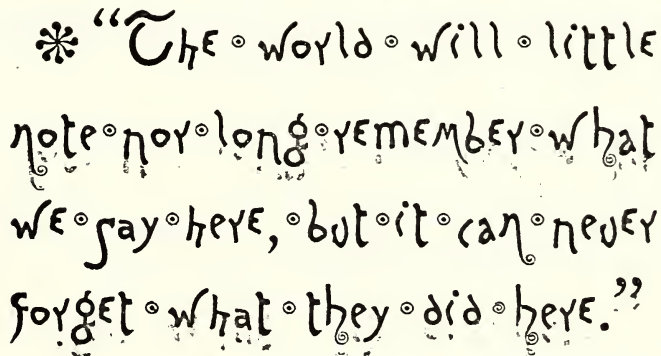 “The world will little
note nor long remember what
we say here, but it can never
forget what they did here.”